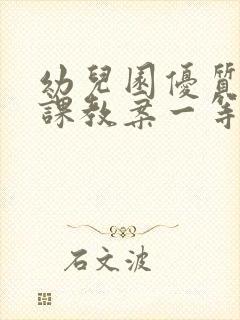 幼兒園優質
課教案一等
石文波